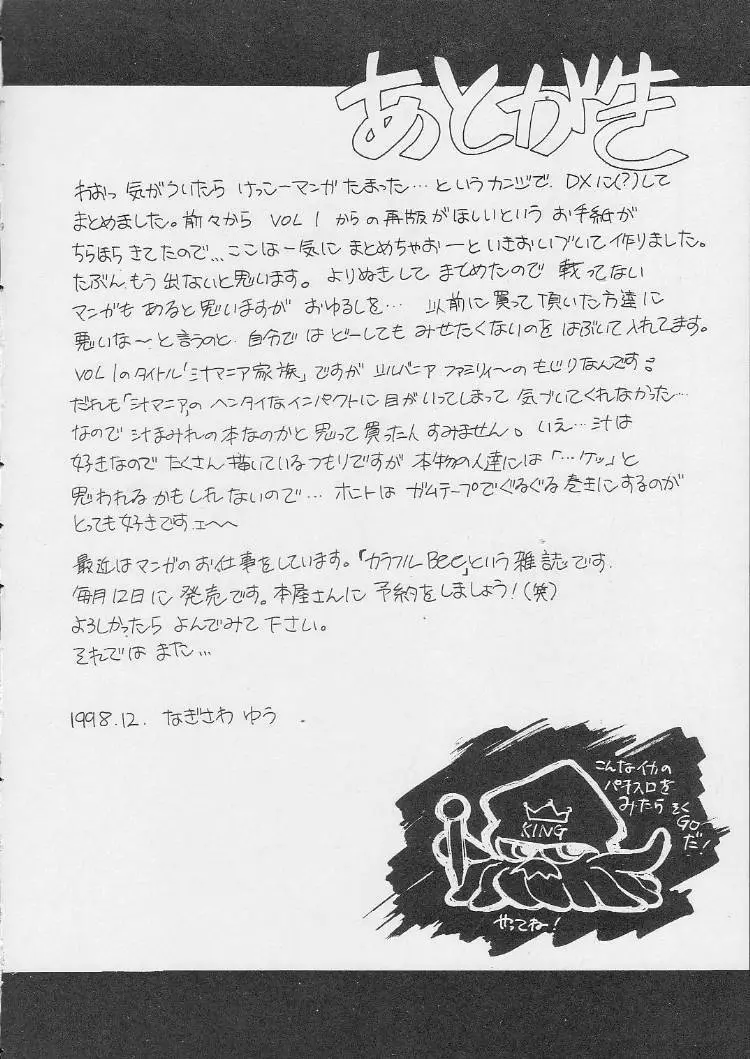 あとがき
わおっ 気がついたら けっこーマンガ たまった…というカンジで、DXに(?)して
まとめました。前々から VOL 1 からの再版がほしいという お手紙が
ちらほら きてたので… ここは一気に まとめちゃおーといきおいづいて作りました。
たぶん、もう出ないと思います。よりぬきして まとめたので 載ってない
マンガも あると思いますが おゆるしを… 以前に買って頂いた方達に
悪いな〜と言うのと、自分では どーしても みせたくないのを はぶいて入れてます。
VOL 1のタイトル「汁マニア家族」ですが シルバニア ファミリィ〜の もじりなんです
だれも「汁マニア」の ヘンタイなインパクトに目がいってしまって 気づいてくれなかった…
なので 汁まみれの本なのかと思って買った人 すみません。いえ…汁は
好きなので たくさん描いているつもりですが 本物の人達には「…ケッ」と
思われるかもしれないので… ホントは ガムテープでぐるぐる巻きにするのが
とっても好きですェ〜〜
最近はマンガのお仕事をしています。「カラフルBee」という雑誌です.
毎月12日に発売です。本屋さんに 予約をしましょう!(笑)
よろしかったら よんでみて下さい。
それでは また…
1998.12. なぎさわ ゆう.
こんなイカの
パチスロを
みたら そく
GO
だ!
KING
やってね!